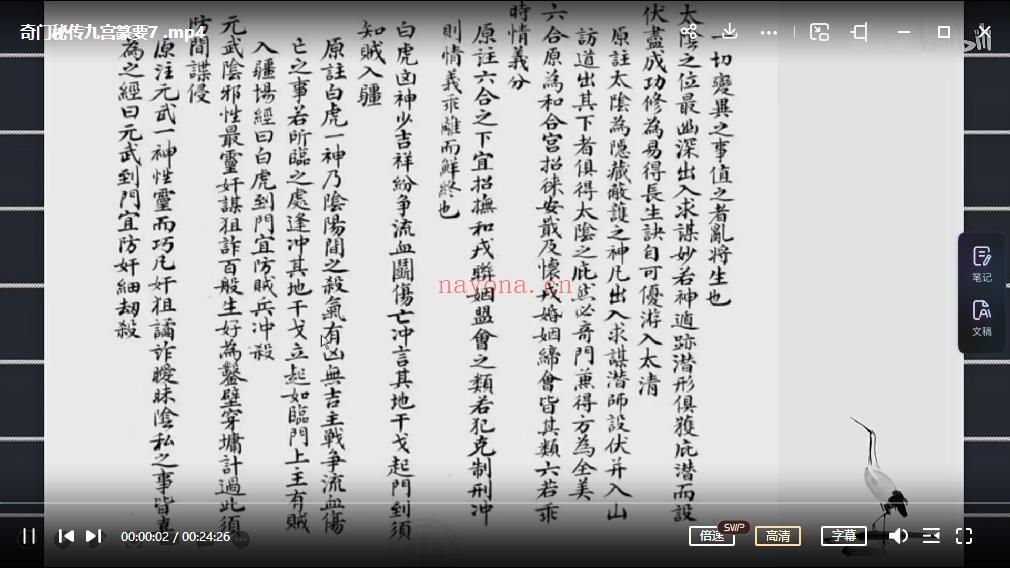 奇门秘传九宫篆要7 .mp4
一切變異之事值之者亂將生也
太陰之位最幽深出入求謀妙若神遁跡潛形俱獲庇潛而設
伏盡成功修為易得長生訣自可優游入太清
原註太陰為隱藏蔽護之神凡出入求謀潛師設伏并入山
訪道出其下者俱得太陰之庇然必奇門兼得方為全美
六合原為和合宮招徠安戢及懷戎婚姻締會皆其類六若乖
時情義分
原註六合之下宜招撫和戎聯姻盟會之類若犯克制刑冲
則情義乖離而鮮終也
白虎凶神少吉祥紛争流血鬪傷亡冲言其地干戈起門到須
知賊入疆
原註白虎一神乃陰陽間之殺氣有凶無吉主戰争流血傷
亡之事若所臨之處逢冲其地干戈立起如臨門上主有賊
入疆場經曰白虎到門宜防賊兵冲殺
元武陰邪性最靈奸謀狙詐百般生好為鑿壁穿墉計過此須
防間諜侵
原注元武一神性靈而巧凡奸狙譎詐曖昧陰私之事皆
為之經曰元武到門宜防奸細刼殺
nayona.cn
笔记
文稿
00:00:02 / 00:24:26
倍速
SVIP
高清
字幕